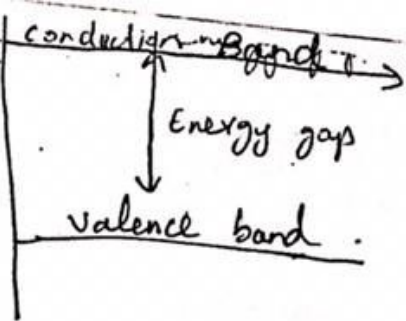 conduction Band
Energy gap
Valence band.